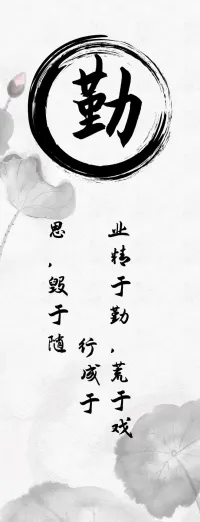 勤
业精于勤，荒于戏
行成于
思，毁于随